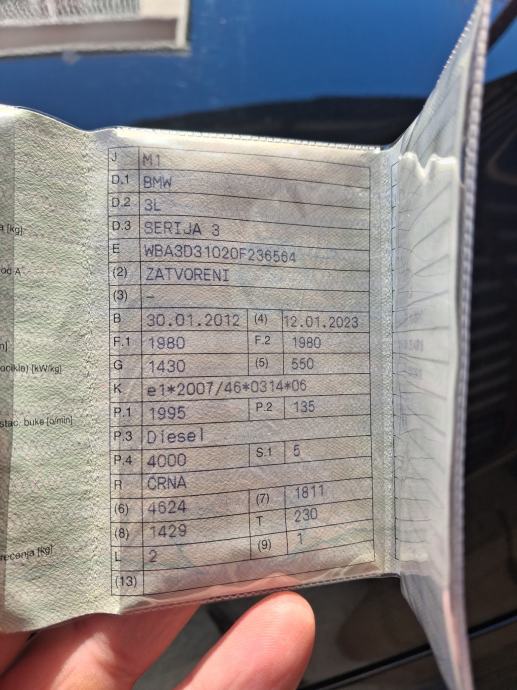 a [kg]
od A
n]
ocikle) [kW/kg]
stac. buke [o/min]
rećenja [kg]
J M1
D.1 BMW
D.2 3L
D.3 SERIJA 3
E WBA3D31020F236564
(2) ZATVORENI
(3) –
B 30.01.2012 (4) 12.01.2023
F.1 1980 F.2 1980
G 1430 (5) 550
K e1*2007/46*0314*06
P.1 1995 P.2 135
P.3 Diesel
P.4 4000 S.1 5
R CRNA
(6) 4624 (7) 1811
(8) 1429 T 230
L 2 (9) 1
(13)